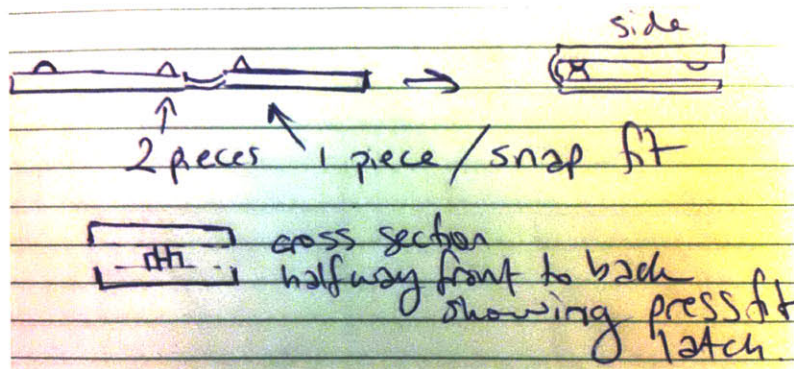 side
2 pieces 1 piece / snap fit
cross section
halfway front to back
showing press fit
latch.